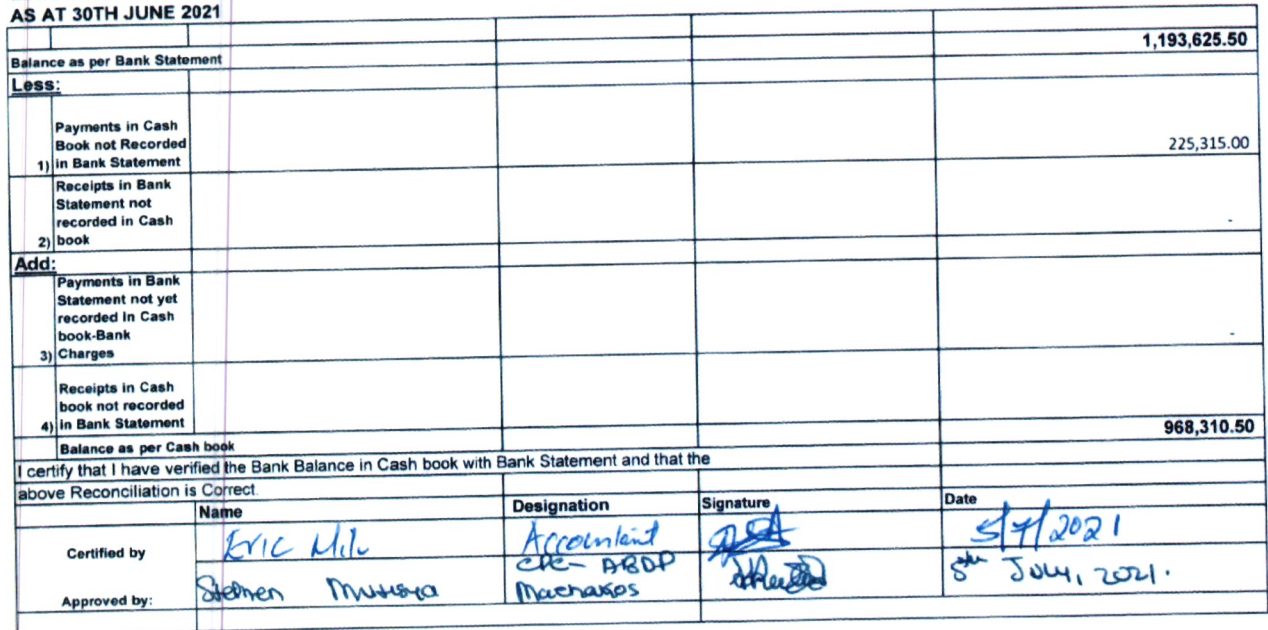 AS AT 30TH JUNE 2021
1,193,625.50
Balance as per Bank Statement
Less:
Payments in Cash
Book not Recorded
1) in Bank Statement 225,315.00
Receipts in Bank
Statement not
recorded in Cash
2) book -
Add:
Payments in Bank
Statement not yet
recorded in Cash
book-Bank
3) Charges -
Receipts in Cash
book not recorded
4) in Bank Statement
968,310.50
Balance as per Cash book
I certify that I have verified the Bank Balance in Cash book with Bank Statement and that the
above Reconciliation is Correct.
Name Designation Signature Date
Certified by Eric Accountant 5/7/2021
CPC- ABDP
Approved by: Stephen Mutisya Machakos 5th July, 2021.